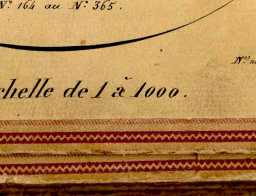 N.º 164 au N.º 365.
N.ºs
chelle de 1 à 1000.